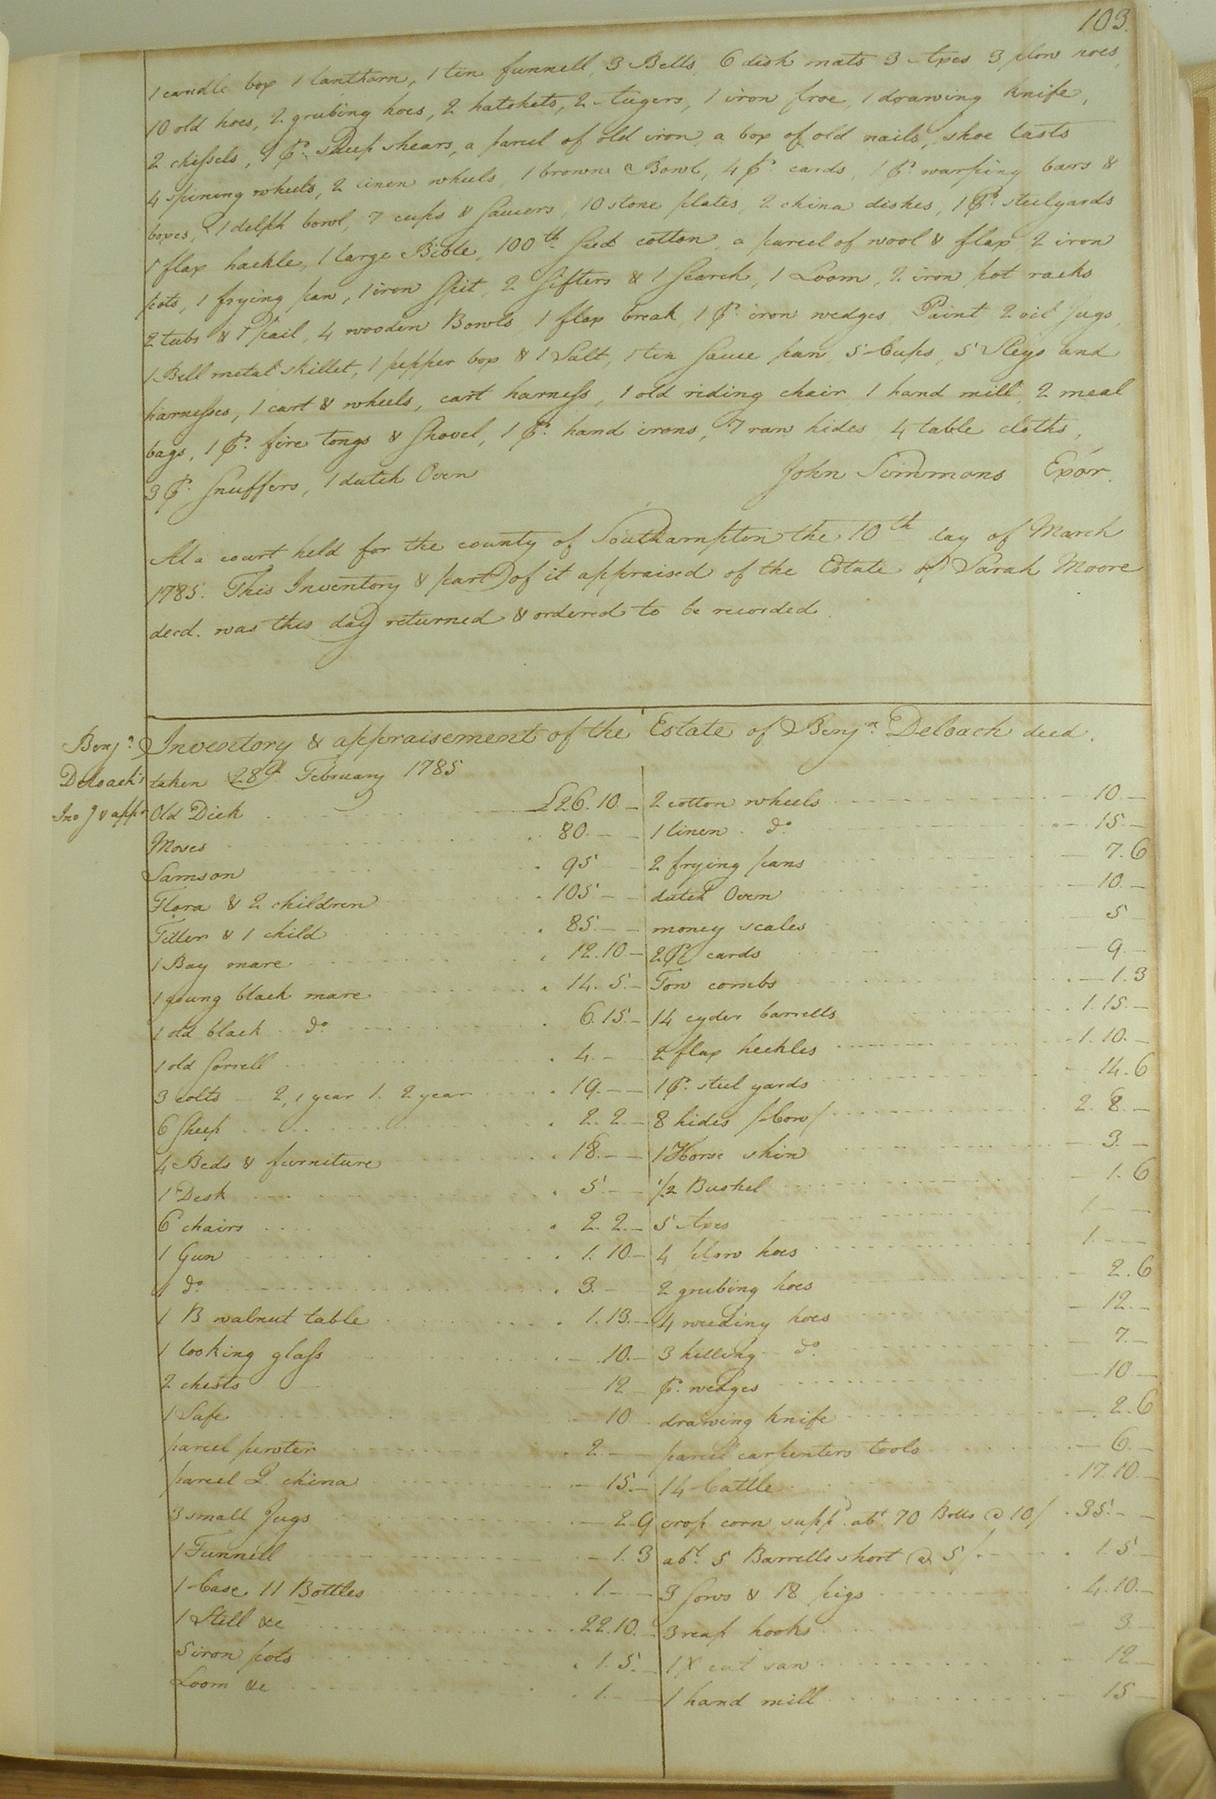 103.
1 candle box 1 lanthorn, 1 tin funnell, 3 Bells, 6 dish mats 3 Axes 3 plow hoes,
10 old hoes, 2 grubing hoes, 2 hatchets, 2 Augers, 1 iron froe, 1 drawing knife,
2 chissels, 1 pr. sheep shears, a parcel of old iron, a box of old nails, shoe lasts
4 spining wheels, 2 linen wheels, 1 brown Bowl, 4 pr. cards, 1 pr. warping bars &
boxes, 1 delph bowl, 7 cups & saucers, 10 stone plates, 2 china dishes, 1 pr. steelyards
1 flax hackle, 1 large Bible, 100 lb. seed cotton, a parcel of wool & flax 2 iron
pots, 1 frying pan, 1 iron spit, 2 sifters & 1 search, 1 Loom, 2 iron pot racks
2 tubs & 1 pail, 4 wooden Bowls, 1 flax break, 1 pr. iron wedges, Paint 2 oil jugs,
1 Bell metal skillet, 1 pepper box & 1 Salt, 1 tin sauce pan, 5 Cups, 5 Sleys and
harnesses, 1 cart & wheels, cart harness, 1 old riding chair, 1 hand mill, 2 meal
bags, 1 pr. fire tongs & shovel, 1 pr. hand irons, 7 raw hides 4 table cloths,
3 pr. snuffers, 1 dutch Oven
John Simmons Exor.
At a court held for the county of Southampton the 10th day of March
1785. This Inventory & part of it appraised of the Estate of Sarah Moore
decd. was this day returned & ordered to be recorded.
Benjn.
Deloach's
Invy & appt
Inventory & appraisement of the Estate of Benjn. Deloach decd.
taken 28th February 1785
Old Dick £26.10.–
Moses 80.–.–
Samson 95
Flora & 2 children 105.–.–
Filler & 1 child 85.–.–
1 Bay mare 12.10.–
1 young black mare 14.5.–
1 old black do. 6.15.–
1 old sorrell 4.–
3 colts – 2, 1 year 1. 2 year 19.–.–
6 sheep 2.2.–
4 Beds & furniture 18.–.–
1 Desk 5.–.–
6 chairs 2.2.–
1 Gun 1.10.–
1 do. 3.–
1 B walnut table 1.13.–
1 looking glass 10.–
2 chests 12
1 Safe 10
parcel pewter 2.–
parcel Q. china 15.–
3 small Jugs 2.9
1 Funnell 1.3
1 Case 11 Bottles 1.–.–
1 Still &c 22.10.
5 iron pots 1.5.–
Loom &c 1.–
2 cotton wheels 10.–
1 linen do. 15.–
2 frying pans 7.6
dutch Oven 10.–
money scales 5
2 pr. cards 9.–
Tow combs 1.3
14 cyder barrells 1.15.–
2 flax heckles 1.10.–
1 pr. steel yards 14.6
8 hides /Cow/ 2.8.–
1 Horse skin 3.–
1/2 Bushel 1.6
5 Axes 1.–.–
4 plow hoes 1.–.–
2 grubing hoes 2.6
4 weeding hoes 12.–
3 hilling do. 7.–
pr. wedges 10.–
drawing knife 2.6
parcel carpenters tools 6.–
14 Cattle 17.10.–
crop corn suppd. abt. 70 Bolls @ 10/ 35.–.–
abt. 5 Barrells short @ 5/ 1.5.–
3 sows & 18 pigs 4.10.–
3 reap hooks 3.–
1 X cut saw 12.–
1 hand mill 15.–